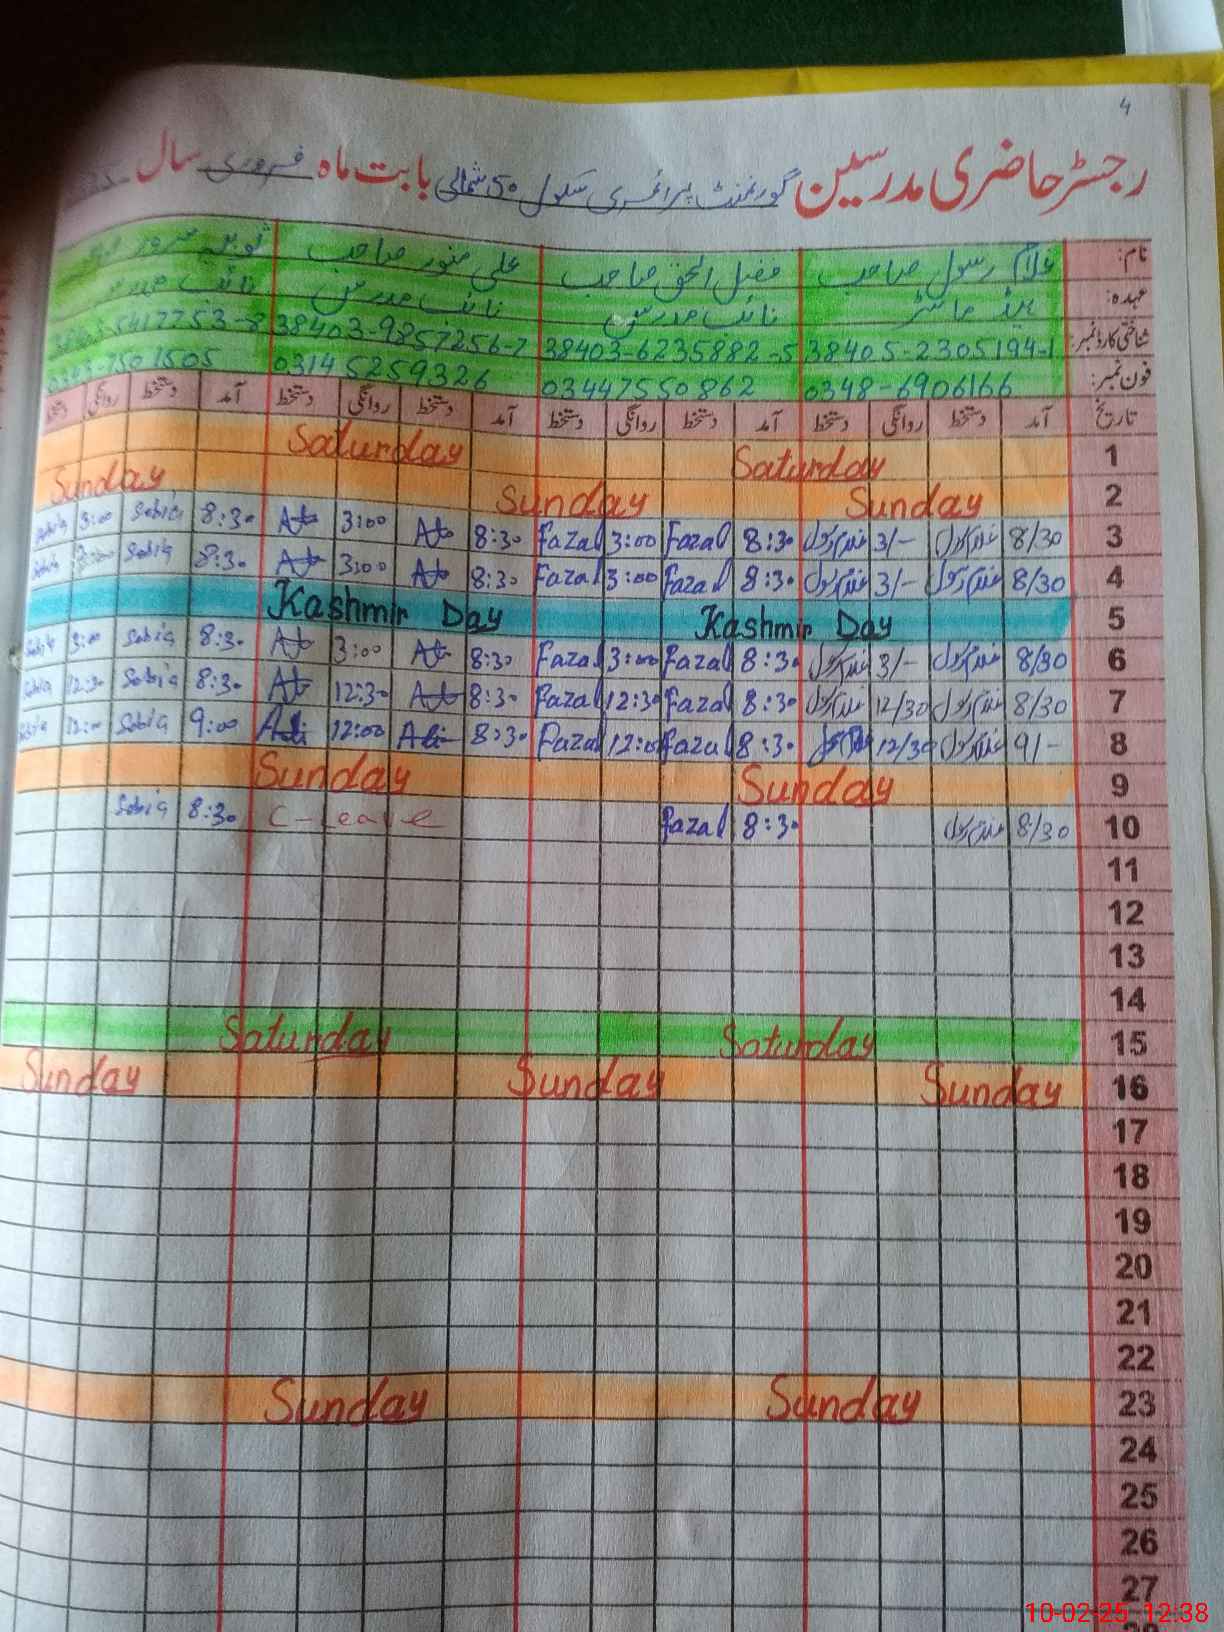 4
رجسٹر حاضری مدرسین گورنمنٹ پرائمری سکول 50 شمالی بابت ماہ فروری سال
نام: غلام رسول صاحب فضل الحق صاحب علی منور صاحب
عہدہ: ہیڈ ماسٹر نائب مدرس نائب مدرس نائب
شناختی کارڈ نمبر: 38405-2305194-1 38403-6235882-5 38403-9857256-7 5417753-8
فون نمبر: 0348-6906166 03447550862 03145259326 0343-7501505
تاریخ آمد دستخط روانگی دستخط آمد دستخط روانگی دستخط آمد دستخط روانگی دستخط آمد دستخط روانگی دستخط
1 Saturday Saturday
2 Sunday Sunday Sunday
3 8/30 غلام رسول 3/- غلام رسول 8:30 Fazal 3:00 Fazal 8:30 3:00 8:30 Sobia 3:00 Sobia
4 8/30 غلام رسول 3/- غلام رسول 8:30 Fazal 3:00 Fazal 8:30 3:00 8:30 Sobia 3:00 Sobia
5 Kashmir Day Kashmir Day
6 8/30 غلام رسول 3/- غلام رسول 8:30 Fazal 3:00 Fazal 8:30 3:00 8:30 Sobia 3:00 Sobia
7 8/30 غلام رسول 12/30 غلام رسول 8:30 Fazal 12:30 Fazal 8:30 12:30 8:30 Sobia 12:30 Sobia
8 9/- غلام رسول 12/30 8:30 Fazal 12:00 Fazal 8:30 Ali 12:00 Ali 9:00 Sobia 12:00 Sobia
9 Sunday Sunday
10 8/30 غلام رسول 8:30 Fazal C-Leave 8:30 Sobia
11
12
13
14
15 Saturday Saturday
16 Sunday Sunday Sunday
17
18
19
20
21
22
23 Sunday Sunday
24
25
26
27
10-02-25 12:38